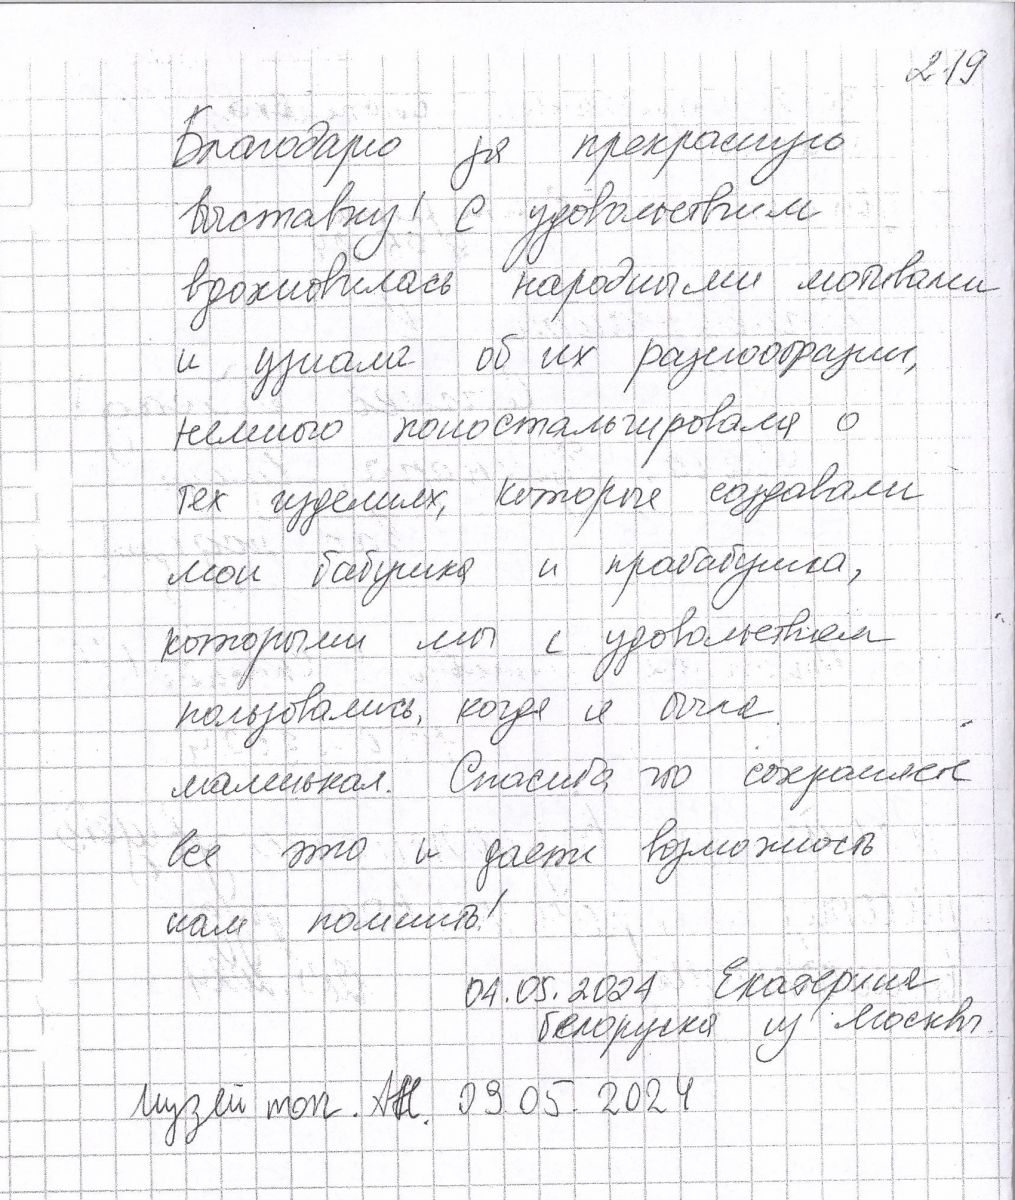 219
Благодарю за прекрасную
выставку! С удовольствием
вдохновилась народными мотивами
и узнала об их разнообразии,
немного поностальгировала о
тех изделиях, которые создавали
мои бабушка и прабабушка,
которыми мы с удовольствием
пользовались, когда я была
маленькая. Спасибо, что сохраняете
все это и даете возможность
нам помнить!
04.05.2024 Екатерина
белоруска из Москвы
Музей топ. 09 05. 2024